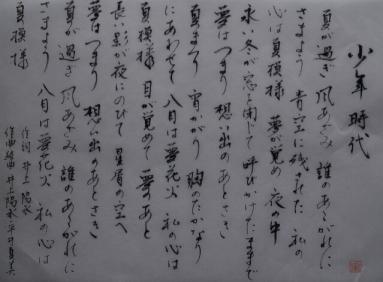 少年時代
夏が過ぎ 風あざみ 誰のあこがれに
さまよう 青空に残された 私の
心は夏模様 夢が覚め 夜の中
永い冬が窓を閉じて 呼びかけたままで
夢はつまり 想い出のあとさき
夏まつり 宵かがり 胸のたかなり
にあわせて 八月は夢花火 私の心は
夏模様 目が覚めて 夢のあと
長い影が夜にのびて 星屑の空へ
夢はつまり 想い出のあとさき
夏が過ぎ 風あざみ 誰のあこがれに
さまよう 八月は夢花火 私の心は
夏模様
作詞 井上陽水
作曲 編曲 井上陽水・平井夏美